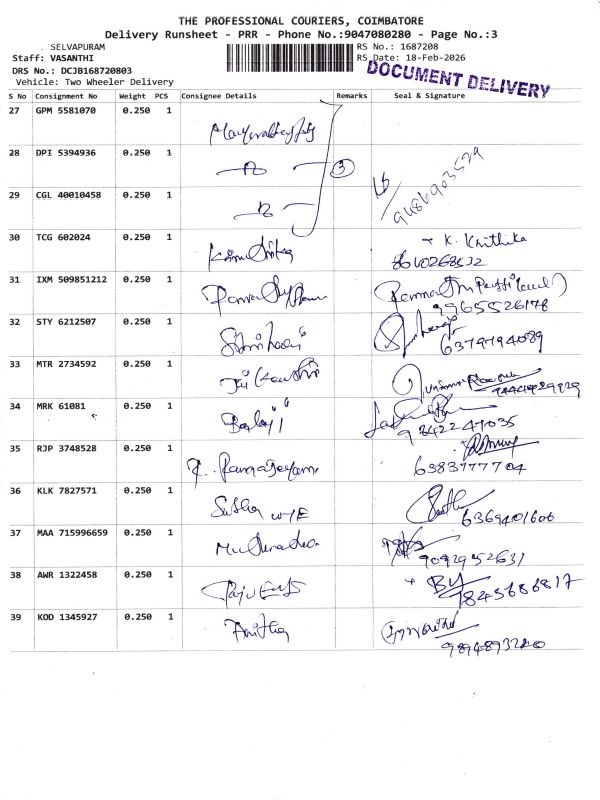 THE PROFESSIONAL COURIERS, COIMBATORE
Delivery Runsheet - PRR - Phone No.:9047080280 - Page No.:3
SELVAPURAM
Staff: VASANTHI
DRS No.: DCJB168720803
Vehicle: Two Wheeler Delivery
RS No.: 1687208
RS Date: 18-Feb-2026
DOCUMENT DELIVERY
S No Consignment No Weight PCS Consignee Details Remarks Seal & Signature
27 GPM 5581070 0.250 1
28 DPI 5394936 0.250 1 3
29 CGL 40010458 0.250 1 9486903579
30 TCG 602024 0.250 1 K. Krithika
8610268532
31 IXM 509851212 0.250 1
9965526178
32 STY 6212507 0.250 1
6379794089
33 MTR 2734592 0.250 1
34 MRK 61081 0.250 1 Balaji
9842247035
35 RJP 3748528 0.250 1
6383777704
36 KLK 7827571 0.250 1 Sutha
6369401606
37 MAA 715996659 0.250 1
9092952631
38 AWR 1322458 0.250 1
9845686817
39 KOD 1345927 0.250 1 Anitha